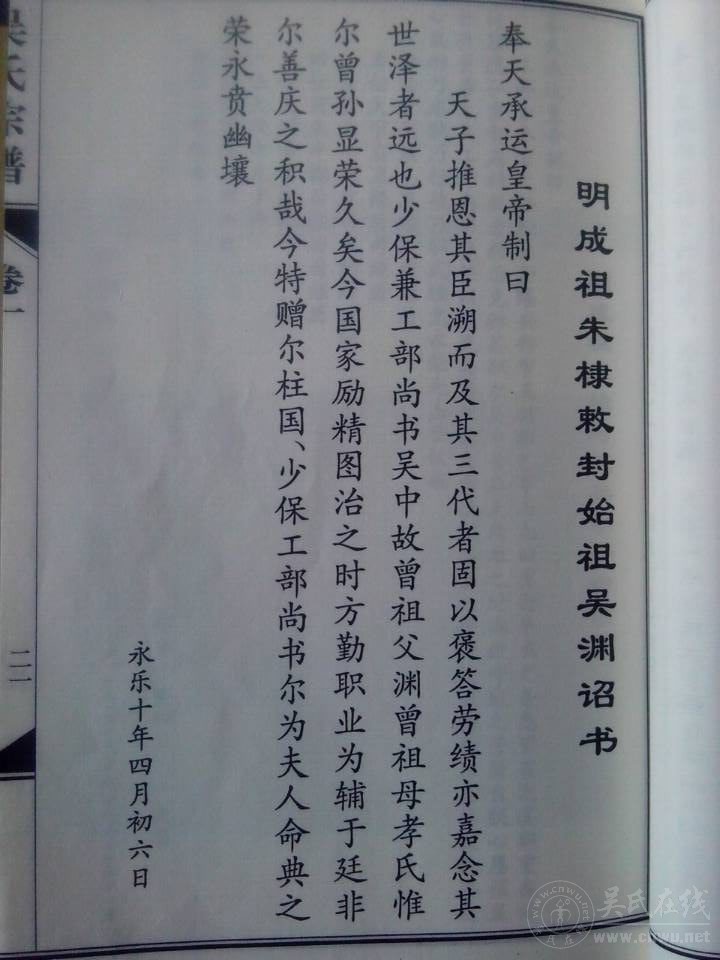 明成祖朱棣敕封始祖吴渊诏书
奉天承运皇帝制曰
天子推恩其臣溯而及其三代者固以褒答劳绩亦嘉念其
世泽者远也少保兼工部尚书吴中故曾祖父渊曾祖母孝氏惟
尔曾孙显荣久矣今国家励精图治之时方勤职业为辅于廷非
尔善庆之积哉今特赠尔柱国、少保工部尚书尔为夫人命典之
荣永贲幽壤
永乐十年四月初六日
吴氏宗谱
卷一
二一
吴氏在线
www.cnwu.net